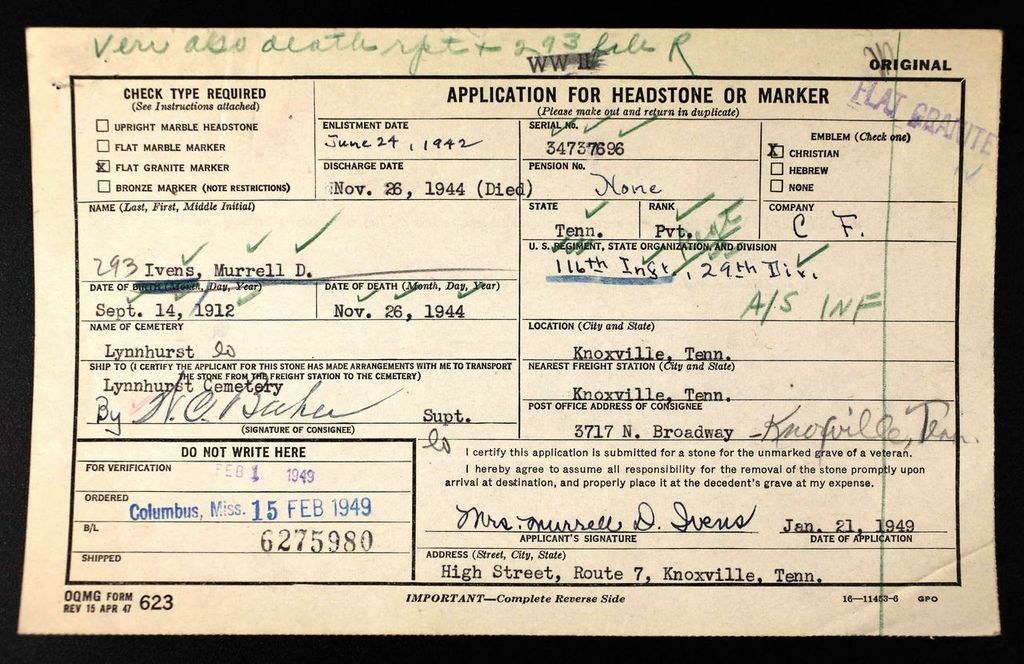 Veri also death rpt + 293 file R
WW II
ORIGINAL
FLAT GRANITE
CHECK TYPE REQUIRED
(See Instructions attached)
UPRIGHT MARBLE HEADSTONE
FLAT MARBLE MARKER
X FLAT GRANITE MARKER
BRONZE MARKER (NOTE RESTRICTIONS)
APPLICATION FOR HEADSTONE OR MARKER
(Please make out and return in duplicate)
ENLISTMENT DATE
June 24, 1942
DISCHARGE DATE
Nov. 26, 1944 (Died)
SERIAL No.
34737696
PENSION No.
None
EMBLEM (Check one)
X CHRISTIAN
HEBREW
NONE
STATE
Tenn.
RANK
Pvt.
COMPANY
C F.
NAME (Last, First, Middle Initial)
293 Ivens, Murrell D.
U. S. REGIMENT, STATE ORGANIZATION, AND DIVISION
116th Inf., 29th Div.
A/S INF
DATE OF BIRTH (Month, Day, Year)
Sept. 14, 1912
DATE OF DEATH (Month, Day, Year)
Nov. 26, 1944
NAME OF CEMETERY
Lynnhurst
LOCATION (City and State)
Knoxville, Tenn.
SHIP TO (I CERTIFY THE APPLICANT FOR THIS STONE HAS MADE ARRANGEMENTS WITH ME TO TRANSPORT
THE STONE FROM THE FREIGHT STATION TO THE CEMETERY)
Lynnhurst Cemetery
By Supt.
(SIGNATURE OF CONSIGNEE)
NEAREST FREIGHT STATION (City and State)
Knoxville, Tenn.
POST OFFICE ADDRESS OF CONSIGNEE
3717 N. Broadway - Knoxville, Tenn.
DO NOT WRITE HERE
FOR VERIFICATION
FEB 1 1949
ORDERED
Columbus, Miss. 15 FEB 1949
B/L
6275980
SHIPPED
I certify this application is submitted for a stone for the unmarked grave of a veteran.
I hereby agree to assume all responsibility for the removal of the stone promptly upon
arrival at destination, and properly place it at the decedent's grave at my expense.
Mrs. Murrell D. Ivens
Jan. 21, 1949
APPLICANT'S SIGNATURE
DATE OF APPLICATION
ADDRESS (Street, City, State)
High Street, Route 7, Knoxville, Tenn.
OQMG FORM
REV 15 APR 47 623
IMPORTANT—Complete Reverse Side
16—11453-6 GPO